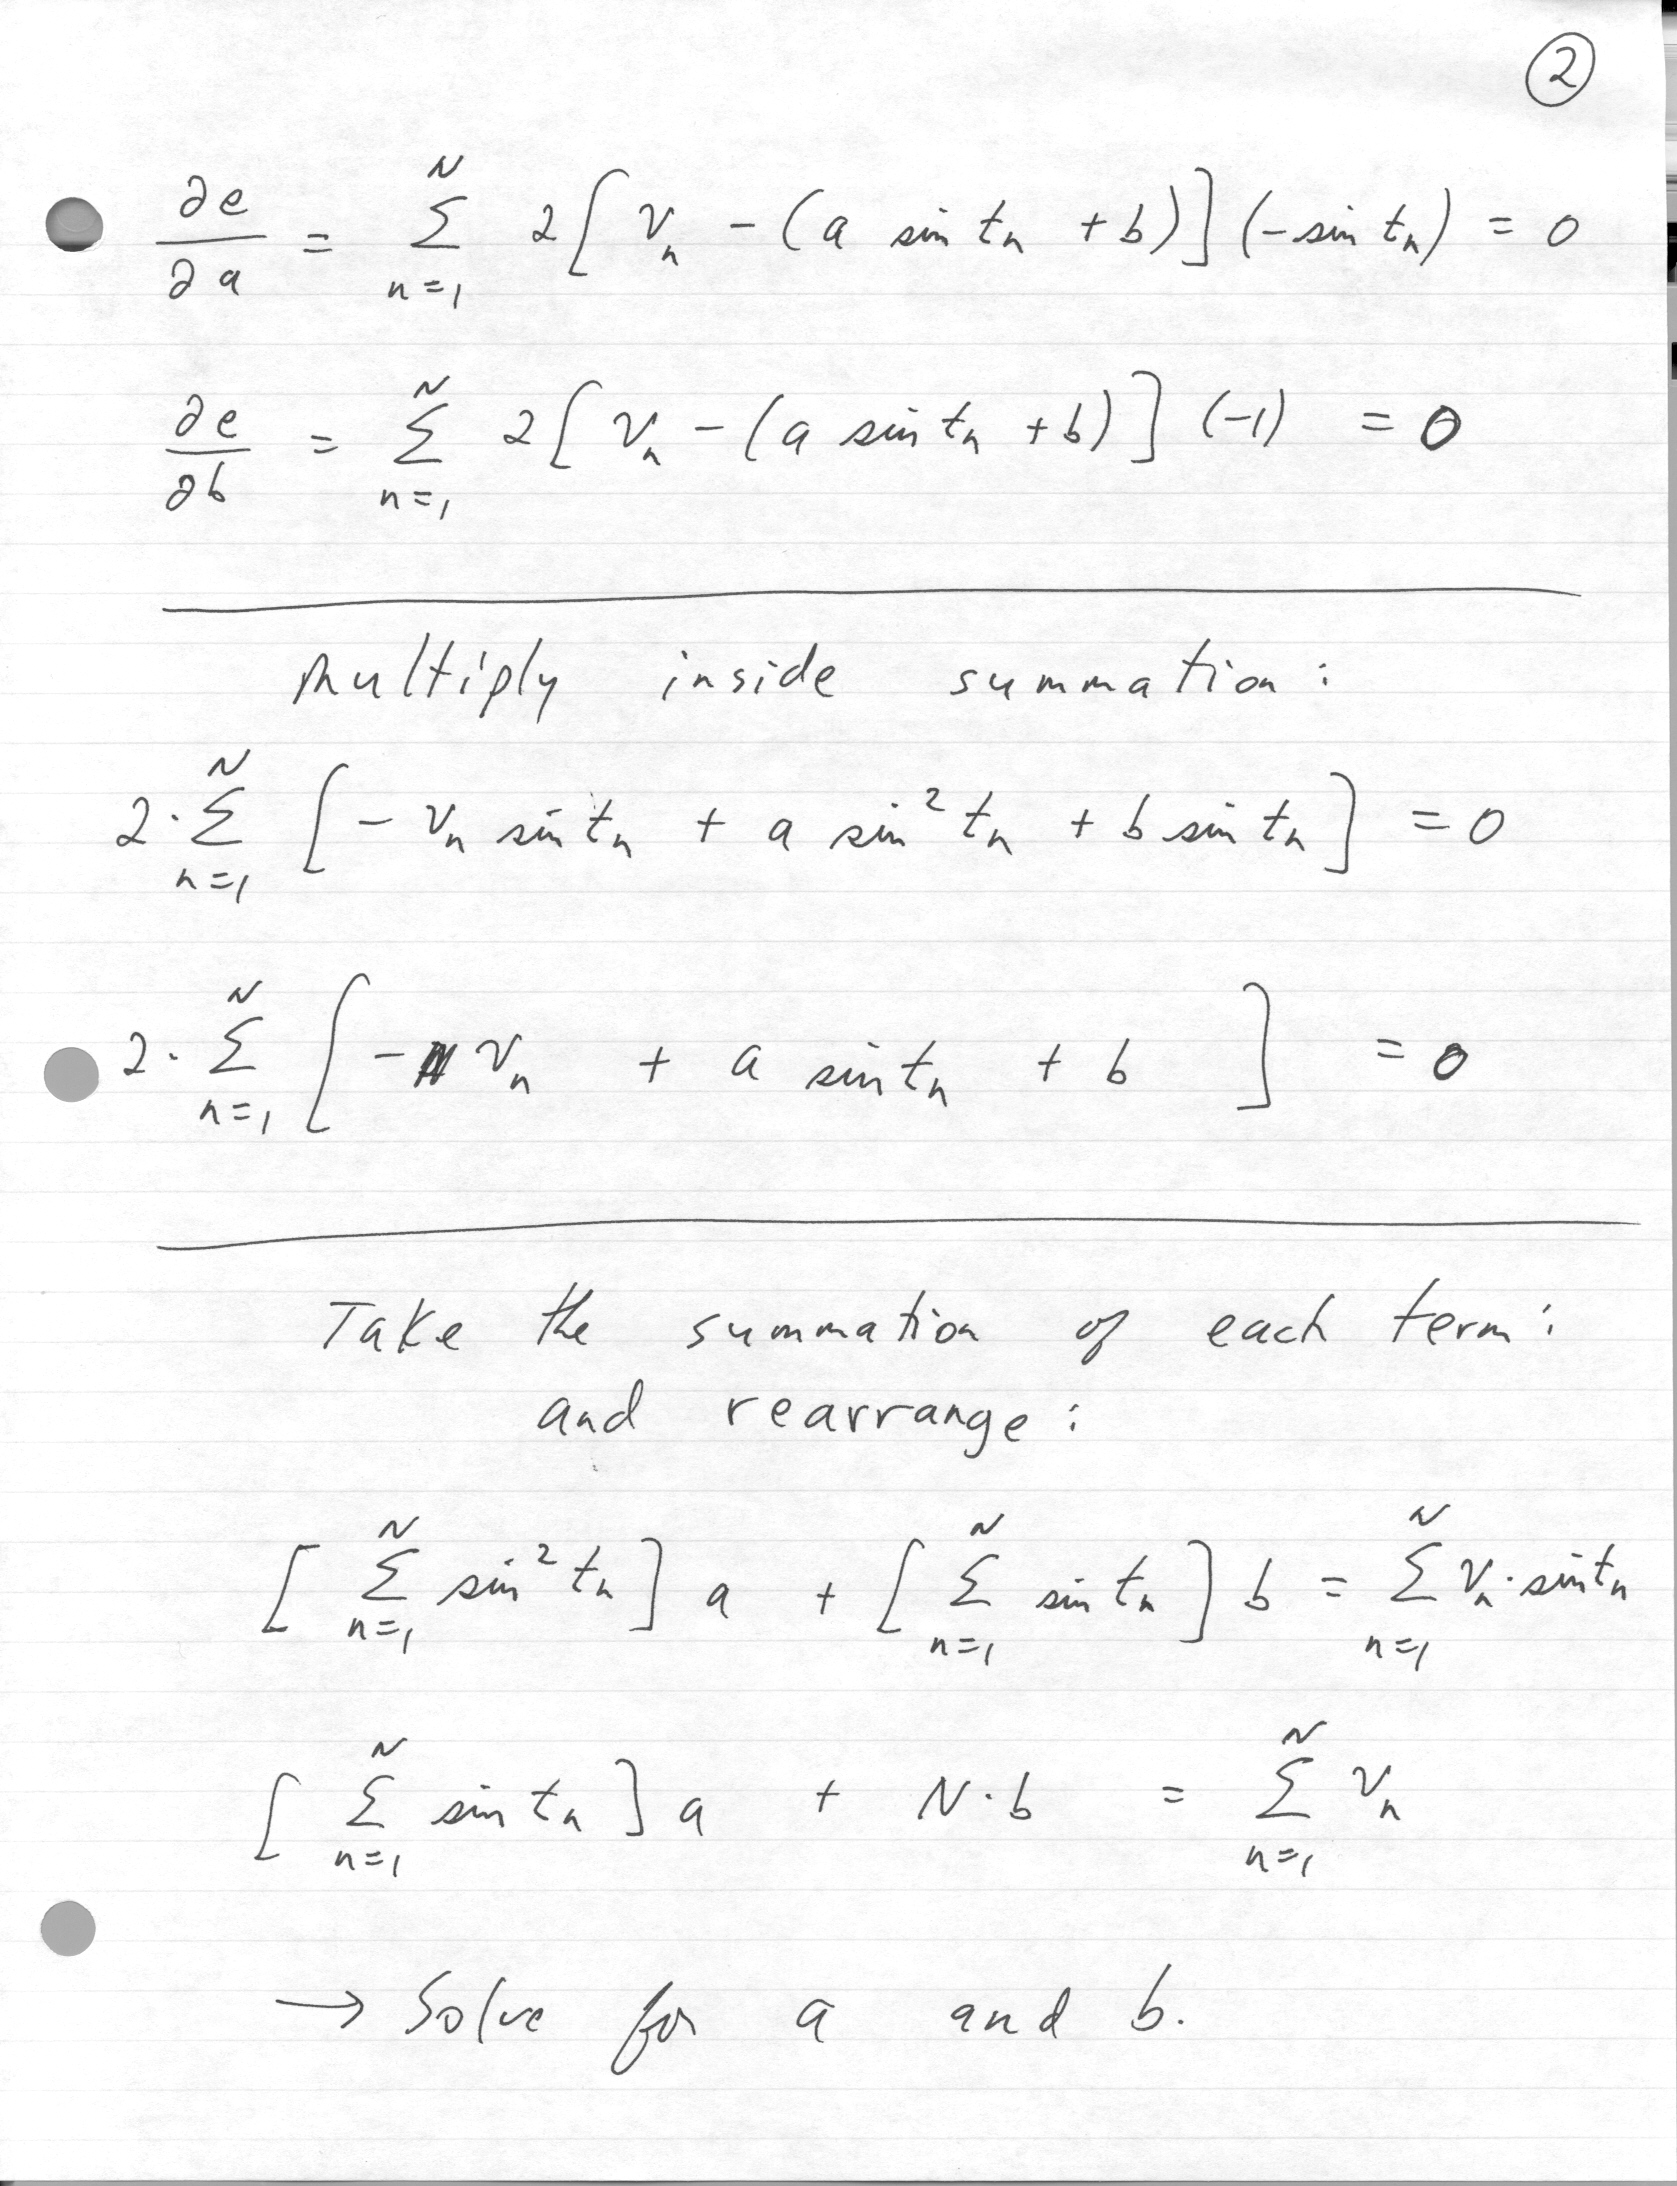 2
∂e/∂a = Σ_{n=1}^{N} 2[v_n - (a sin t_n + b)](-sin t_n) = 0
∂e/∂b = Σ_{n=1}^{N} 2[v_n - (a sin t_n + b)](-1) = 0
Multiply inside summation:
2·Σ_{n=1}^{N} [-v_n sin t_n + a sin² t_n + b sin t_n] = 0
2·Σ_{n=1}^{N} [-v_n + a sin t_n + b] = 0
Take the summation of each term:
and rearrange:
[Σ_{n=1}^{N} sin² t_n] a + [Σ_{n=1}^{N} sin t_n] b = Σ_{n=1}^{N} v_n·sin t_n
[Σ_{n=1}^{N} sin t_n] a + N·b = Σ_{n=1}^{N} v_n
→ Solve for a and b.